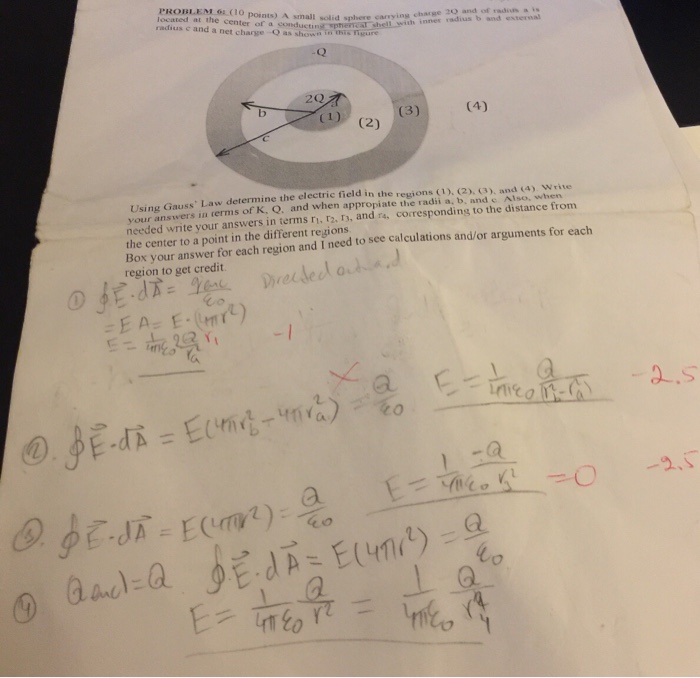 PROBLEM 6: (10 points) A small solid sphere carrying charge 2Q and of radius a is
located at the center of a conducting spherical shell with inner radius b and external
radius c and a net charge -Q as shown in this figure
-Q
2Q
b
(1)
(2)
(3)
(4)
c
Using Gauss' Law determine the electric field in the regions (1), (2), (3), and (4) Write
your answers in terms of K, Q, and when appropiate the radii a, b, and c. Also, when
needed write your answers in terms r₁, r₂, r₃, and r₄, corresponding to the distance from
the center to a point in the different regions
Box your answer for each region and I need to see calculations and/or arguments for each
region to get credit
① ∮E⃗·dA⃗ = qenc/ε₀ Directed outward
= EA = E·(4πr²)
E = 1/4πε₀ 2Q/ra² r₁ -1
②. ∮E⃗·dA⃗ = E(4πrb² - 4πra²) = Q/ε₀ E = 1/4πε₀ Q/(rb² - ra²) -2.5
③. ∮E⃗·dA⃗ = E(4πr²) = Q/ε₀ E = 1/4πε₀ -Q/r₃² =0 -2.5
④ Qencl = Q ∮E⃗·dA⃗ = E(4πr²) = Q/ε₀
E = 1/4πε₀ Q/r² = 1/4πε₀ Q/r₄²